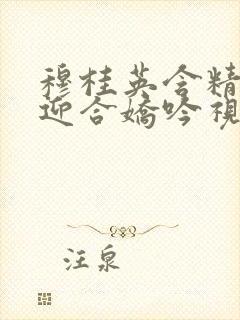 穆桂英含精
迎合嬌吟視
汪泉